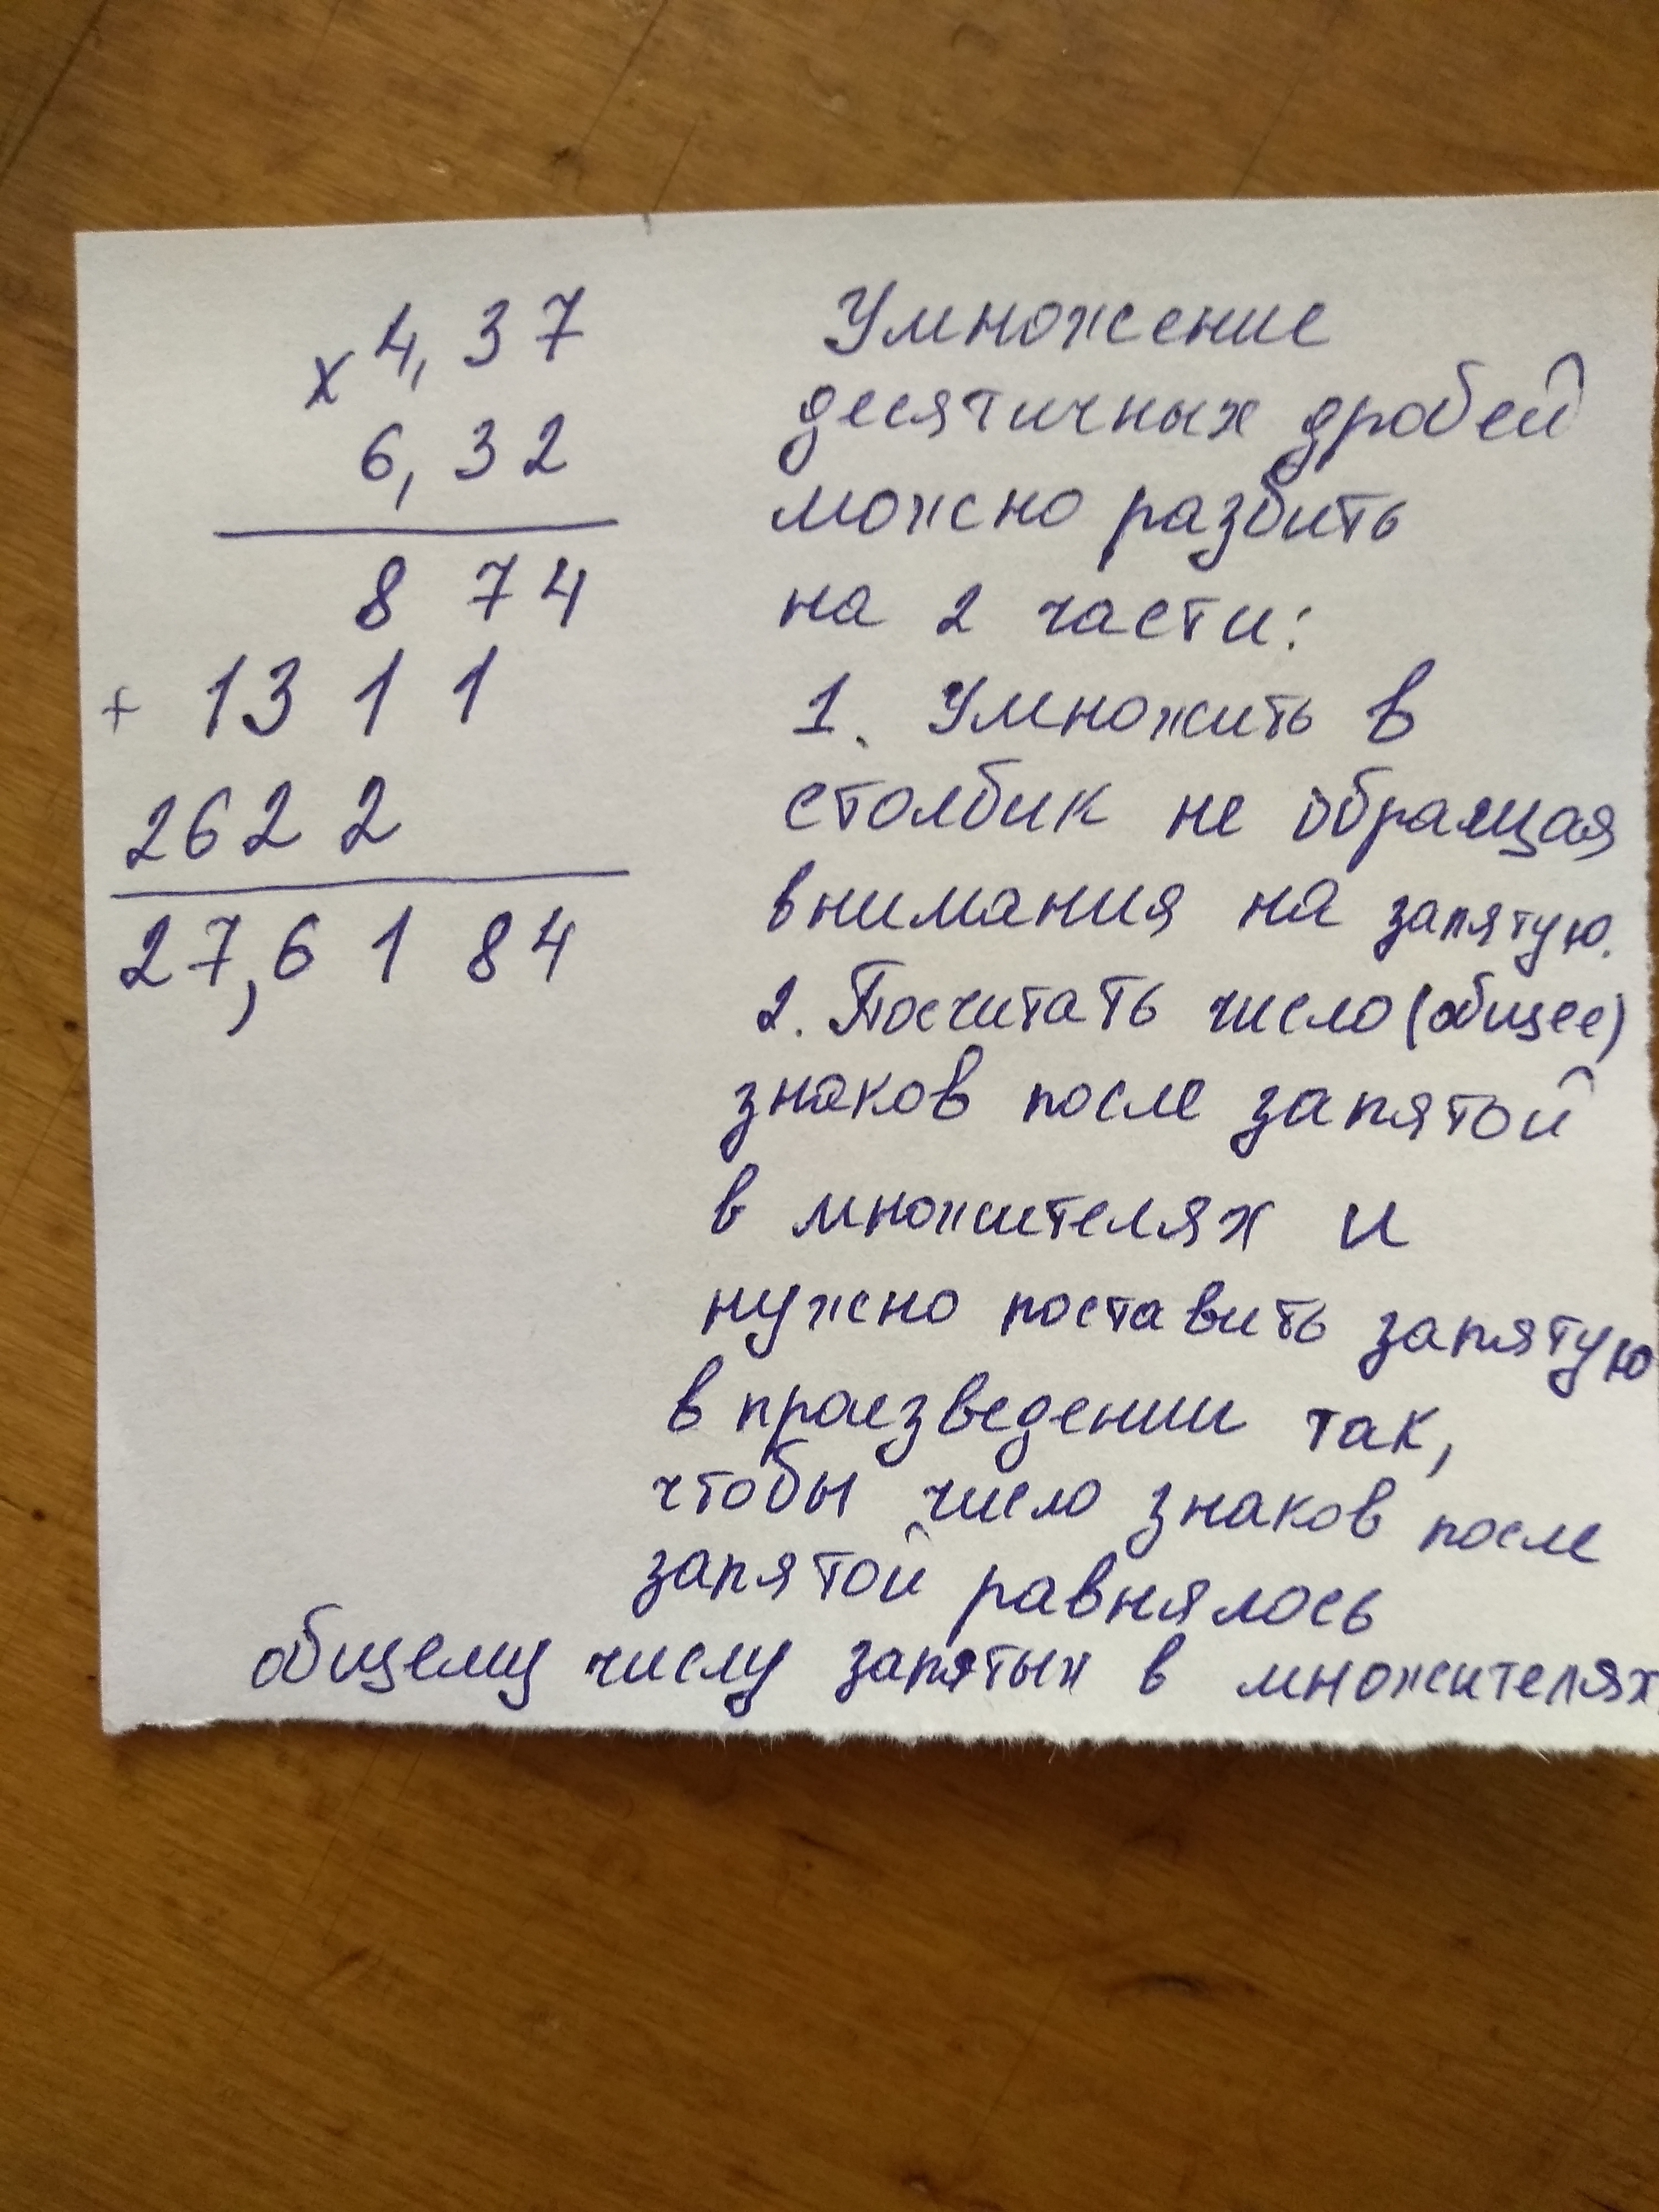 × 4,37
6,32
874
+ 1311
2622
27,6184
Умножение
десятичных дробей
можно разбить
на 2 части:
1. Умножить в
столбик не обращая
внимания на запятую.
2. Посчитать число (общее)
знаков после запятой
в множителях и
нужно поставить запятую
в произведении так,
чтобы число знаков после
запятой равнялось
общему числу запятых в множителях.